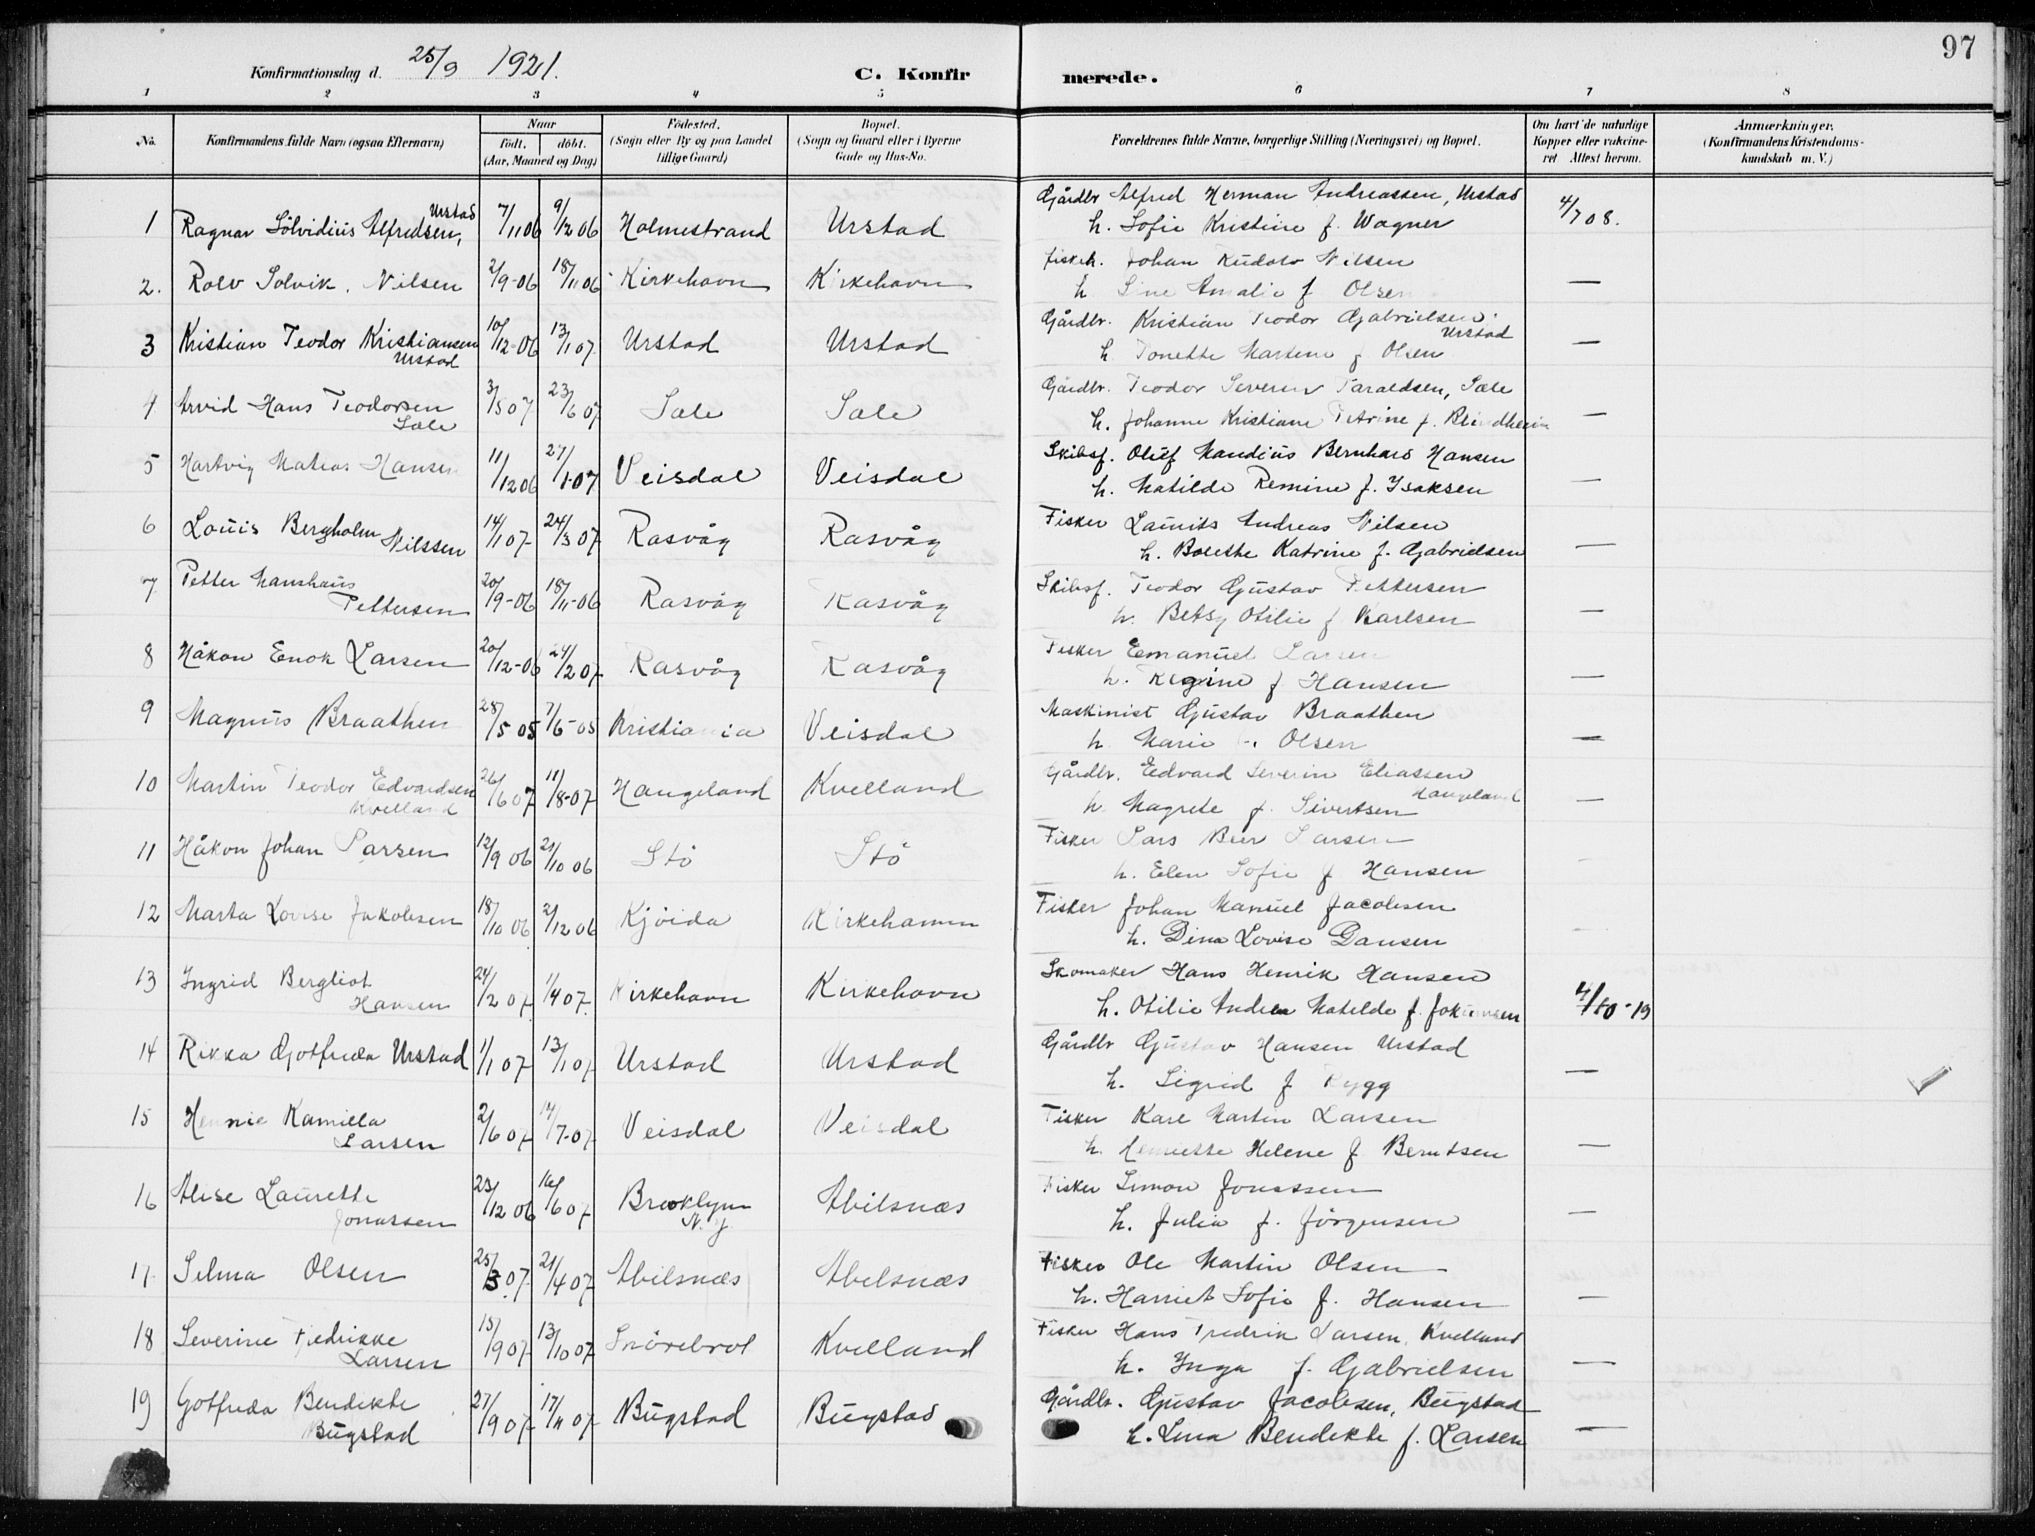 97
Konfirmationsdag d. 25/9 1921.
C. Konfirmerede.
1 2 3 4 5 6 7 8
No. Konfirmandens fulde Navn (ogsaa Efternavn) Naar født. døbt. (Aar, Maaned og Dag) Fødested. (Sogn eller By og paa Landet tillige Gaard) Bopæl. (Sogn og Gaard eller i Byerne Gade og Hus-No. Forældrenes fulde Navne, borgerlige Stilling (Næringsvei) og Bopæl. Om havt de naturlige Kopper eller vakcineret Attest herom. Anmærkninger. (Konfirmandens Kristendomskundskab m. V.)
1 Ragnar Sölvidius Alfredsen, Urstad 7/11 06 9/12 06 Holmestrand Urstad Gårdbr Alfred Herman Andreassen, Urstad 4/7 08.
h. Sofie Kristine f. Wagner
2. Rolv Solvik Nilsen 2/9-06 18/11 06 Kirkehavn Kirkehavn fiskeh. Johan Rudolv Nilsen —
h Sine Amalie f Olsen
3 Kristian Teodor Kristiansen Urstad 10/12-06 13/1 07 Urstad Urstad Gårdbr. Kristian Teodor Gabrielsen Urstad —
h. Tonette Martene f Olsen
4 Arvid Hans Teodorsen Sæle 3/5 07 23/6 07 Sæle Sæle Gårdbr. Teodor Severin Taraldsen, Sæle —
h. Johanne Kristiane Petrine f. Blindheim
5 Hartvig Matias Hansen 11/12 06 27/1-07 Veisdal Veisdal Skibsf. Oluf Mandius Bernhard Hansen —
h. Matilde Remine f. Ysaksen
6 Louis Bergholm Nilssen 14/1 07 24/3 07 Rasvåg Rasvåg Fisker Laurits Andreas Nilsen —
h. Bolette Katrine f. Gabrielsen
7 Petter Manshaus Pettersen 20/9-06 18/11-06 Rasvåg Rasvåg Skibsf. Teodor Gustav Pettersen —
h. Betsy Otilie f Karlsen
8 Håkon Enok Larsen 20/12-06 24/2 07 Rasvåg Rasvåg Fisker Emanuel Larsen —
h. Regine f Hansen
9 Magnus Braathen 28/5 05 7/6-05 Kristiania Veisdal Maskinist Gustav Braathen —
h Marie f. Olsen
10 Martin Teodor Edvardsen Kvelland 26/6 07 11/8-07 Haugeland Kvelland Gårdbr. Edvard Severin Eliassen Haugeland —
h. Magrete f. Sivertsen
11 Håkon Johan Larsen 12/9 06 21/10 06 Stö Stö Fisker Lars Beer Larsen
h. Elen Sofie f Hansen
12 Marta Lovise Jakobsen 18/10 06 2/12 06 Kjöida Kirkehamn Fisker Johan Manuel Jacobsen
h. Dina Lovise Dansen
13 Ingrid Bergliot Hansen 24/2 07 1/4 07 Kirkehavn Kirkehavn Skomaker Hans Henrik Hansen 4/10-19
h. Otilie Andrea Matilde f.
14 Rikka Gotfreda Urstad 1/1 07 13/1 07 Urstad Urstad Gårdbr Gustav Hansen Urstad —
h. Sigrid f Rygg
15 Hennie Kamilla Larsen 2/6 07 14/7-07 Veisdal Veisdal Fisker Karl Martin Larsen —
h. Henriette Helene f Berntsen
16 Alise Laurette Jonassen 23/12 06 16/6 07 Brooklyn N. Y. Abilsnæs Fisker Simon Jonassen —
h. Julia f. Jörgensen
17 Selma Olsen 25/3 07 21/4 07 Abilsnæs Abelsnæs Fisker Ole Martin Olsen —
h. Harriet Sofie f. Hansen
18 Severine Fredrikke Larsen 15/9 07 13/10 07 Snörebrot Kvelland Fisker Hans Fredrik Larsen, Kvelland —
h. Inga f. Gabrielsen
19 Gotfreda Bendikte Bugstad 27/9 07 17/11 07 Bugstad Bugstad Gårdbr. Gustav Jacobsen, Bugstad —
h. Lina Bendikte f. Larsen